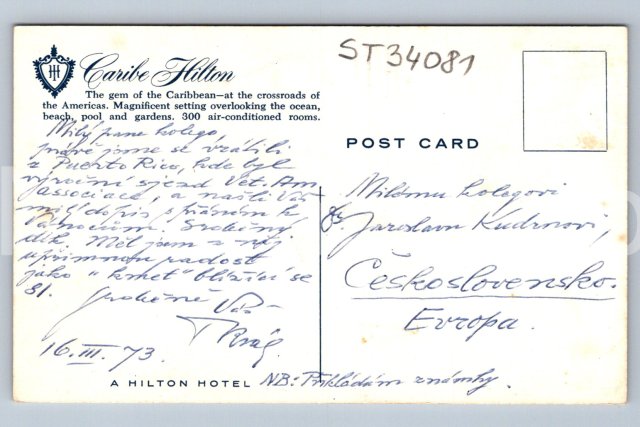 ST34081
Caribe Hilton
The gem of the Caribbean—at the crossroads of
the Americas. Magnificent setting overlooking the ocean,
beach, pool and gardens. 300 air-conditioned rooms.
POST CARD
Milý pane kolego,
právě jsme se vrátili
z Puerto Rico, kde byl
výroční sjezd Vet. Am.
associace, a našli Váš
milý dopis s přáním k
Vánocům. Srdečný
dík. Měl jsem z něj
upřímnou radost
jako "kmet" blížící se
81.
Srdečně Váš
Král
16. III. 73
Milému kolegovi
Jaroslavu Kudrnovi,
Československo.
Evropa.
A HILTON HOTEL
NB: Přikládám známky.